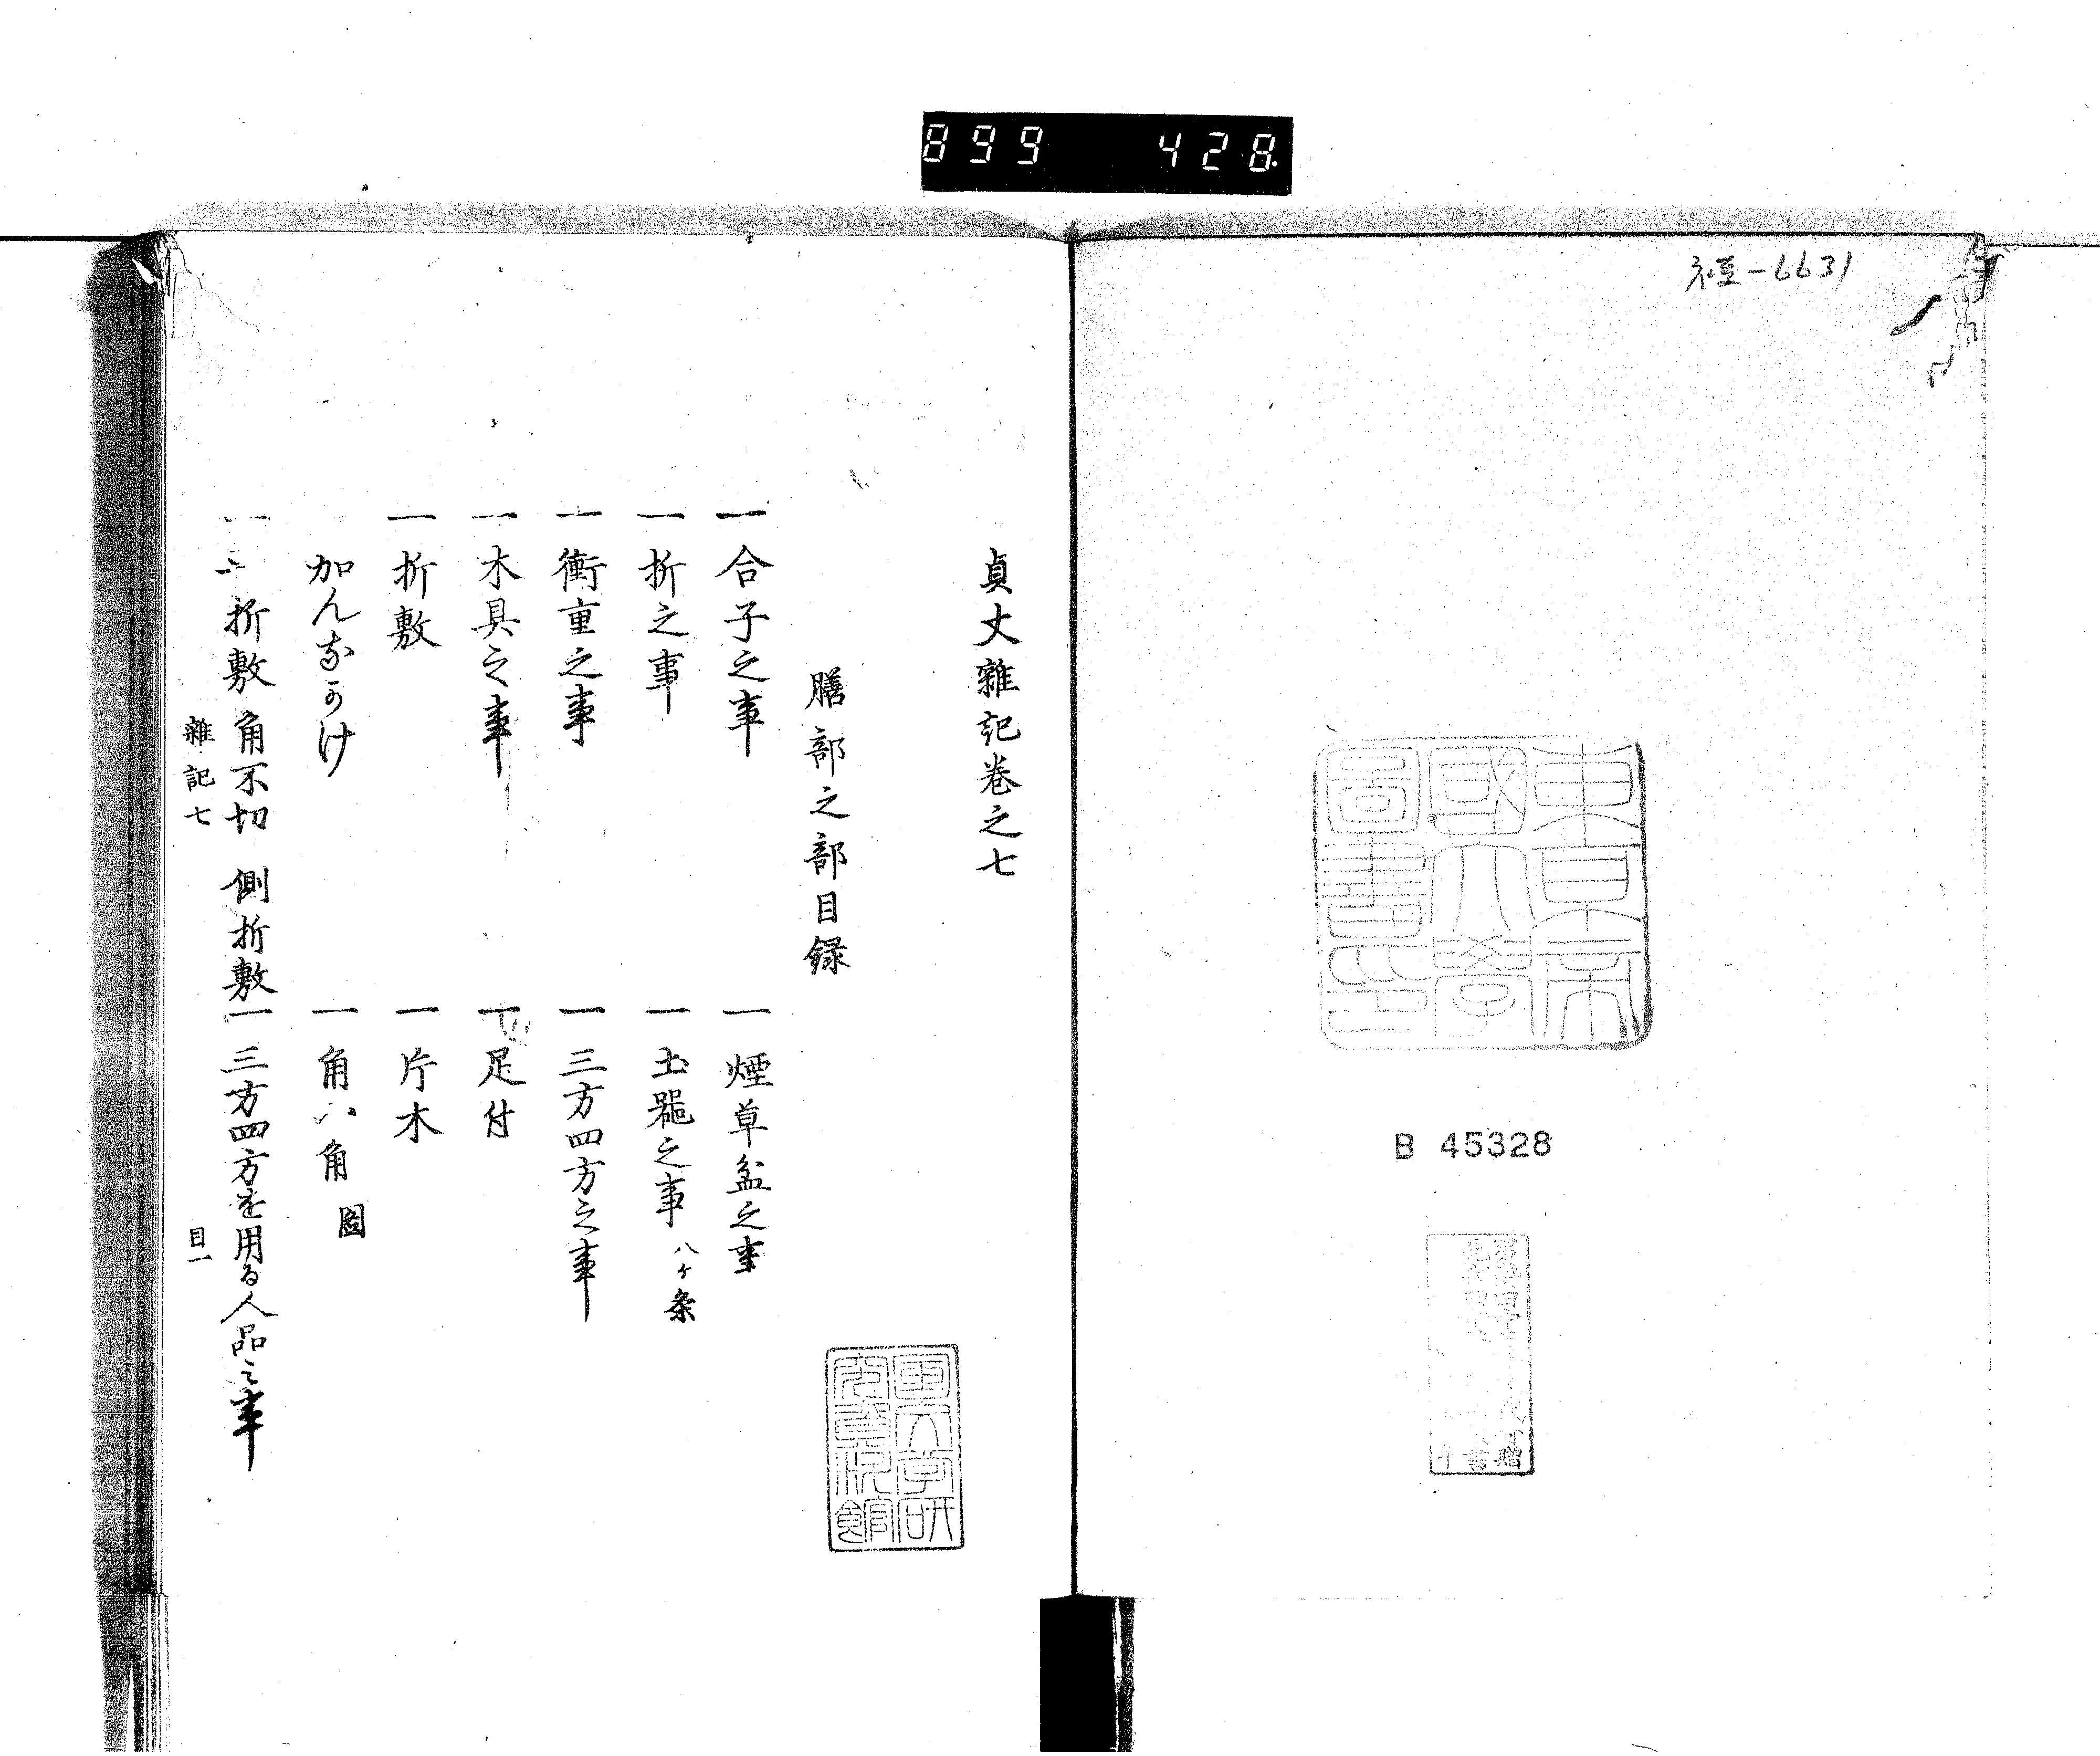 899 428
ネ亘-6631
東京帝
國大學
圖書印
B 45328
貞丈雑記巻之七
膳部之部目録
一 合子之事
一 煙草盆之事
一 折之事
一 土器之事 八ケ条
一 衝重之事
一 三方四方之事
一 木具之事
一 足付
一 折敷
一 片木
加んなかけ
一 角八角 圖
一 折敷 角不切 側折敷
一 三方四方を用る人品之事
雜記七
目一